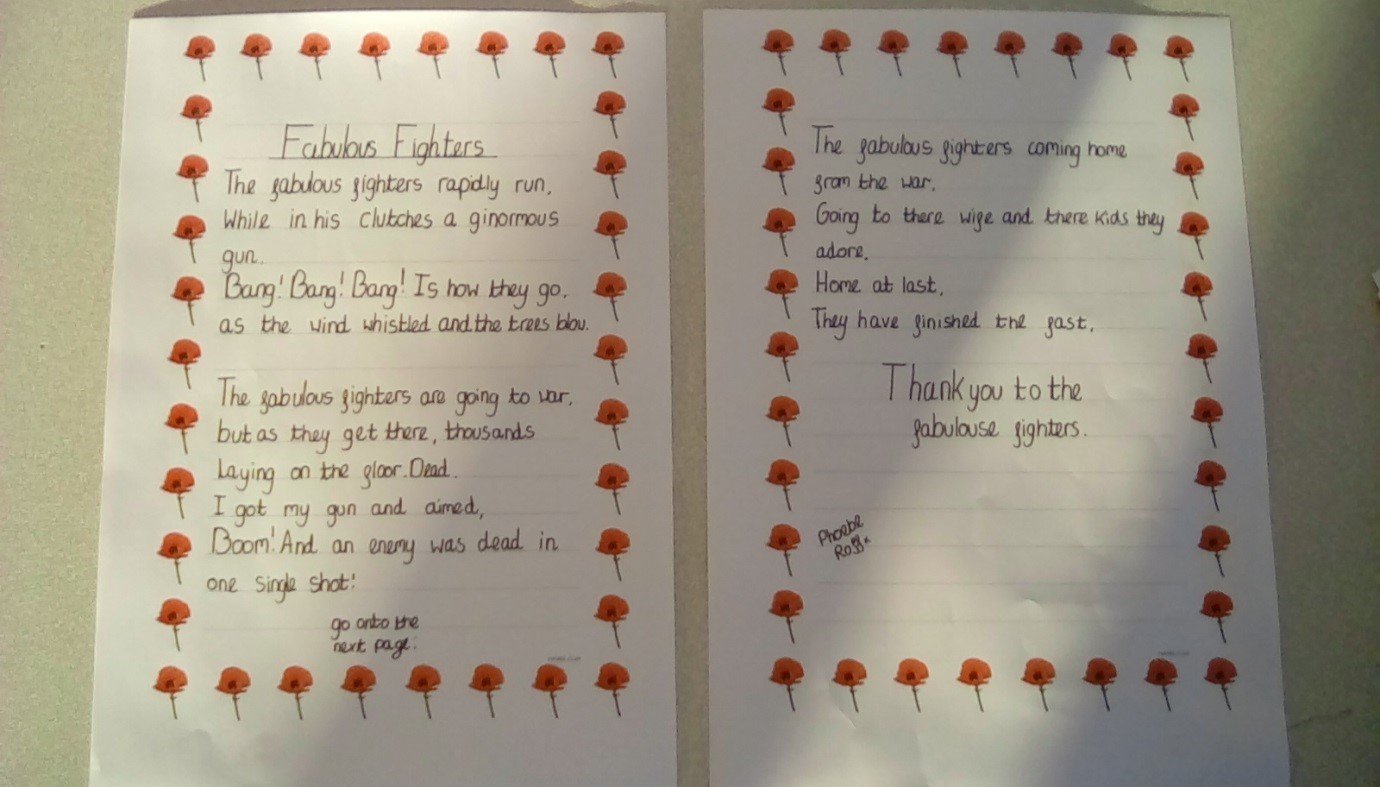 Fabulous Fighters
The fabulous fighters rapidly run,
While in his clutches a ginormous
gun.
Bang! Bang! Bang! Is how they go,
as the wind whistled and the trees blow.
The fabulous fighters are going to war,
but as they get there, thousands
Laying on the floor. Dead.
I got my gun and aimed,
Boom! And an enemy was dead in
one single shot!
go onto the
next page.
The fabulous fighters coming home
from the war.
Going to there wife and there kids they
adore.
Home at last,
They have finished the fast.
Thank you to the
fabulouse fighters.
Phoebe